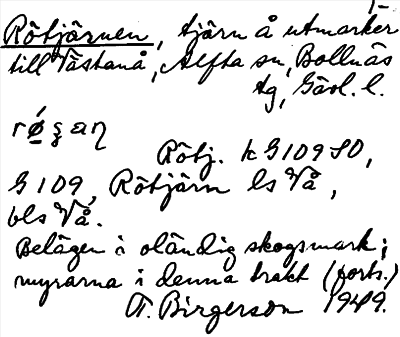 Rötjärnen, tjärn å utmarker
till Västanå, Alfta sn, Bollnäs
tg, Gävl. l.
Rötj. k G109 SO,
G 109, Rötjärn ls Vå,
bls Vå.
Belägen i oländig skogsmark;
myrarna i denna trakt (forts.)
T. Birgerson 1949.